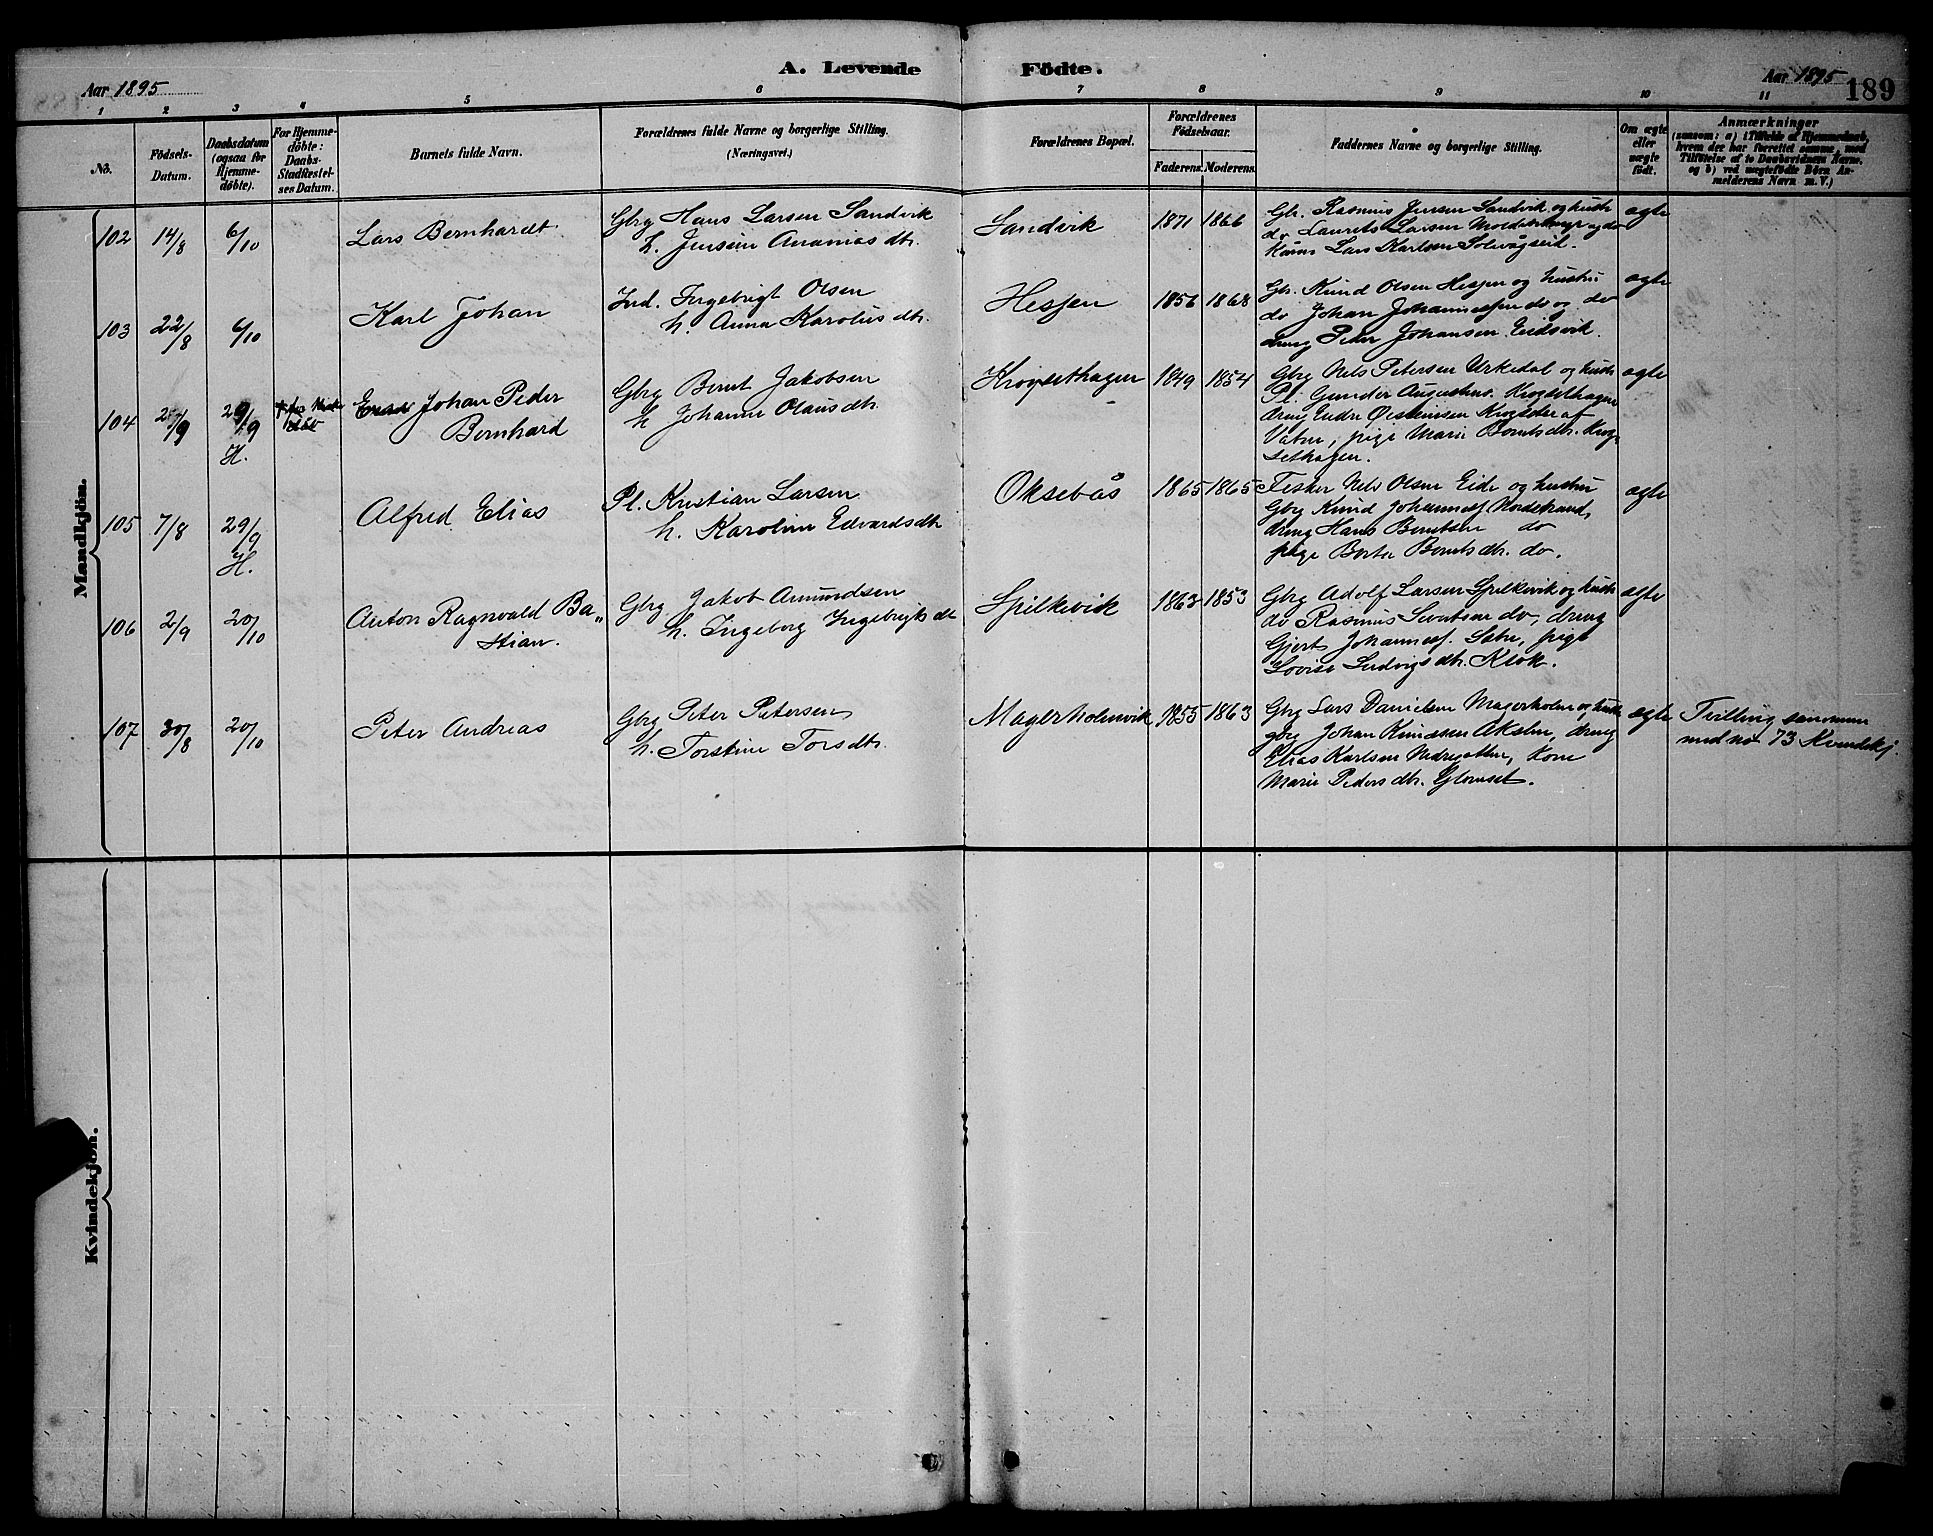 A. Levende Födte.
Aar 1895
Aar 1895 189
1 2 3 4 5 6 7 8 9 10 11
No.
Födsels-
Datum.
Daabsdatum
(ogsaa for
Hjemme-
döbte).
For Hjemme-
döbte:
Daabs-
Stadfæstel-
ses Datum.
Barnets fulde Navn.
Forældrenes fulde Navne og borgerlige Stilling.
(Næringsvei.)
Forældrenes Bopæl.
Forældrenes
Födselsaar.
Faderens. Moderens.
Faddernes Navne og borgerlige Stilling.
Om ægte
eller
uægte
födt.
Anmærkninger
(saasom: a) i Tilfælde af Hjemmedaab,
hvem der har forrettet samme, med
Tilföielse af to Daabsvidners Navne,
og b) ved uægtefödte Börn An-
melderens Navn m. V.)
Mandkjön.
102 14/8 6/10 Lars Bernhardt
Gbrg Hans Larsen Sandvik
h. Jensine Ananiasdtr.
Sandvik 1871 1866
Gbr. Rasmus Jensen Sandvik og hustr
do Laurits Larsen og do
Lars Karlsen Solevågseid.
ægte
103 22/8 6/10 Karl Johan
Ind. Ingebrigt Olsen
h. Anna Karolusdtr.
Hesjen 1856 1868
Gbr. Knud Olsen Hesjen og hustru
do Johan Johannessen do og do
dreng Peter Johansen Eidsvik.
ægte
104 29/9 H.
Johan Peder
Bernhard
Gbrg Bernt Jakobsen
h Johanne Olausdtr.
Krogsethagen 1849 1854
Gbrg Nils Petersen Urkedal og hustr
Pl. Gunder Augustins. Krogsethagen
dreng Endre Krogsæter af
Vatne, pige Marie Berntsdtr. Krog-
sethagen.
ægte
105 7/8 29/9 H. Alfred Elias
Pl. Kristian Larsen
h. Karoline Edvardsdtr
Oksebås 1865 1865
Fisker Nils Olsen Eide og hustru
Gbrg Knud Johanness Nordstrand,
dreng Hans Berntsen do
pige Berte Berntsdtr. do.
ægte
106 2/9 20/10 Anton Ragnvald Ba„
stian.
Gbrg Jakob Amundsen
h. Ingeborg Ingebrigtsdt
Spilkevik 1863 1853
Gbrg Adolf Larsen Spilkevik og hustr
do Rasmus Sivertsen do, dreng
Gjert Johanness. Satre, pige
Lovise Ludvigsdtr. Klok.
ægte
107 30/8 20/10 Peter Andreas
Gbrg Peter Petersen
h. Torstine Torsdtr.
Magerholmvik 1855 1863
Gbrg Lars Danielsen Magerholm og hustr
gbrg Johan Knudsen Akslen, dreng
Elias Karlsen, Kone
Marie Pedersdtr. Glomset.
ægte
Tvilling sammen
med no 73 Kvindekj.
Kvindekjön.